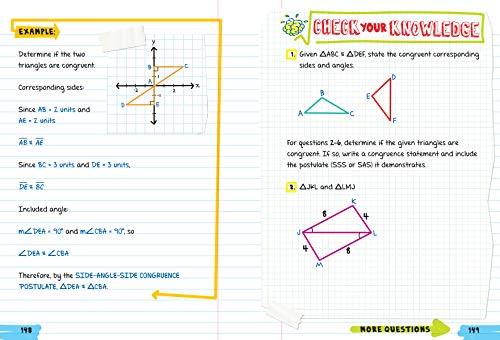 EXAMPLE:
Determine if the two
triangles are congruent.
Corresponding sides:
Since AB = 2 units and
AE = 2 units
AB ≅ AE
Since BC = 3 units and DE = 3 units,
DE ≅ BC
Included angle:
m∠DEA = 90° and m∠CBA = 90°, so
∠DEA ≅ ∠CBA
Therefore, by the SIDE-ANGLE-SIDE CONGRUENCE
POSTULATE, △DEA ≅ △CBA.
y
B
C
A
x
D
E
148
CHECK YOUR KNOWLEDGE
1. Given △ABC ≅ △DEF, state the congruent corresponding
sides and angles.
B
A
C
D
E
F
For questions 2-6, determine if the given triangles are
congruent. If so, write a congruence statement and include
the postulate (SSS or SAS) it demonstrates.
2. △JKL and △LMJ
K
8
4
J
L
4
8
M
MORE QUESTIONS
149